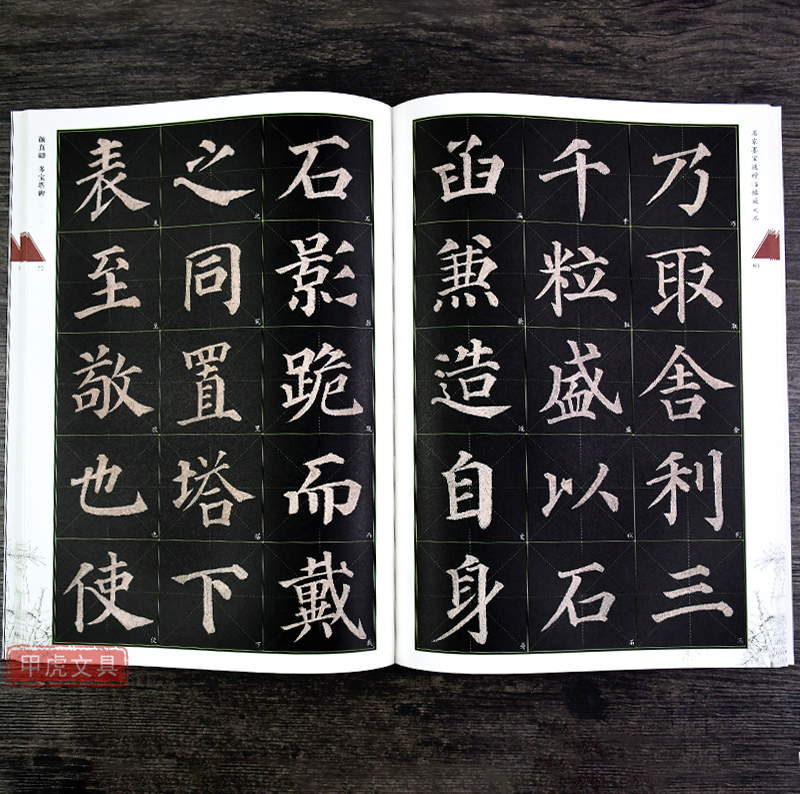 乃取舍利三
千粒盛以石
函兼造自身
石影跪而戴
之同置塔下
表至敬也使
颜真卿 多宝塔碑
70
甲虎文具